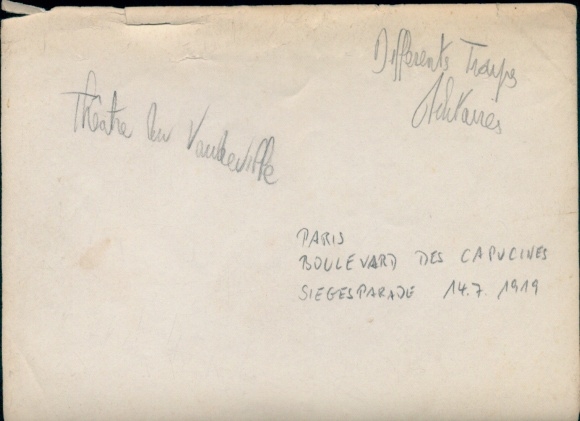 Différents Troupes
Militaires
Théâtre du Vaudeville
PARIS
BOULEVARD DES CAPUCINES
SIEGESPARADE 14.7. 1919